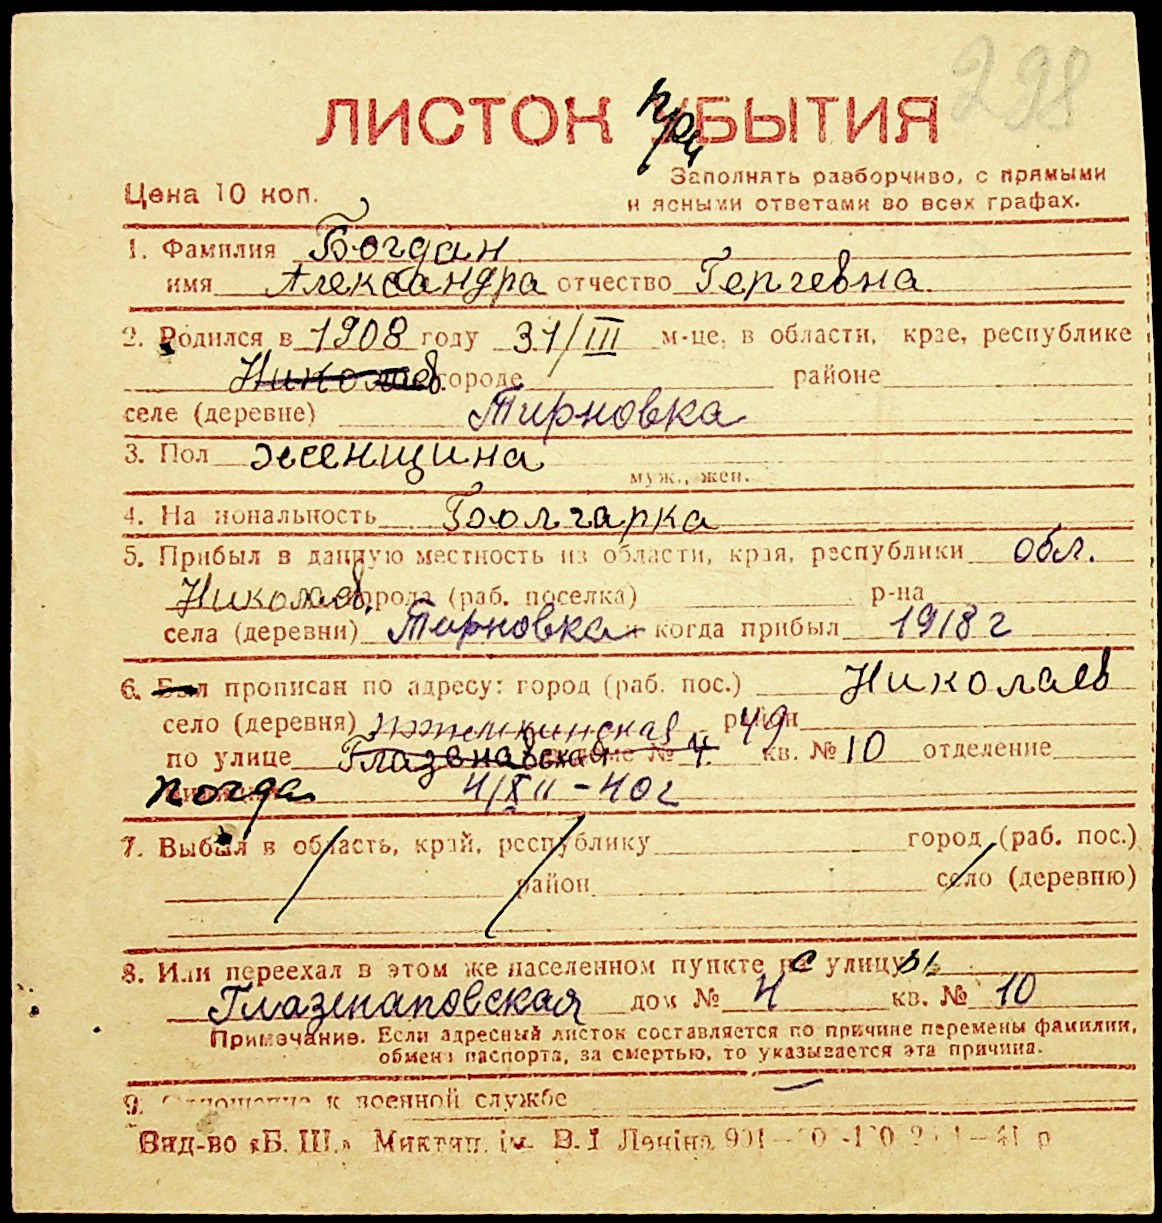 298
ЛИСТОК при УБЫТИЯ
Цена 10 коп.
Заполнять разборчиво, с прямыми
и ясными ответами во всех графах.
1. Фамилия Богдан
имя Александра отчество Гергевна
2. Родился в 1908 году 31/III м-це, в области, крае, республике
Николаев. городе районе
селе (деревне) Тирновка
3. Пол женщина
муж., жен.
4. Национальность Болгарка
5. Прибыл в данную местность из области, края, республики обл.
Николаев. города (раб. поселка) р-на
села (деревни) Тирновка и когда прибыл 1918 г
6. Был прописан по адресу: город (раб. пос.) Николаев
село (деревня) район 49
по улице Глазенавская доме № 4 кв. № 10 отделение
когда милиции 4/XII-40 г
7. Выбыл в область, край, республику город (раб. пос.)
район село (деревню)
8. Или переехал в этом же населенном пункте с улицы
Глазенаповская дом № 4 кв. № 10
Примечание. Если адресный листок составляется по причине перемены фамилии,
обмена паспорта, за смертью, то указывается эта причина.
9. Отношение к военной службе —
Вид-во «Б. Ш.» Миктип. ім. В. І Леніна